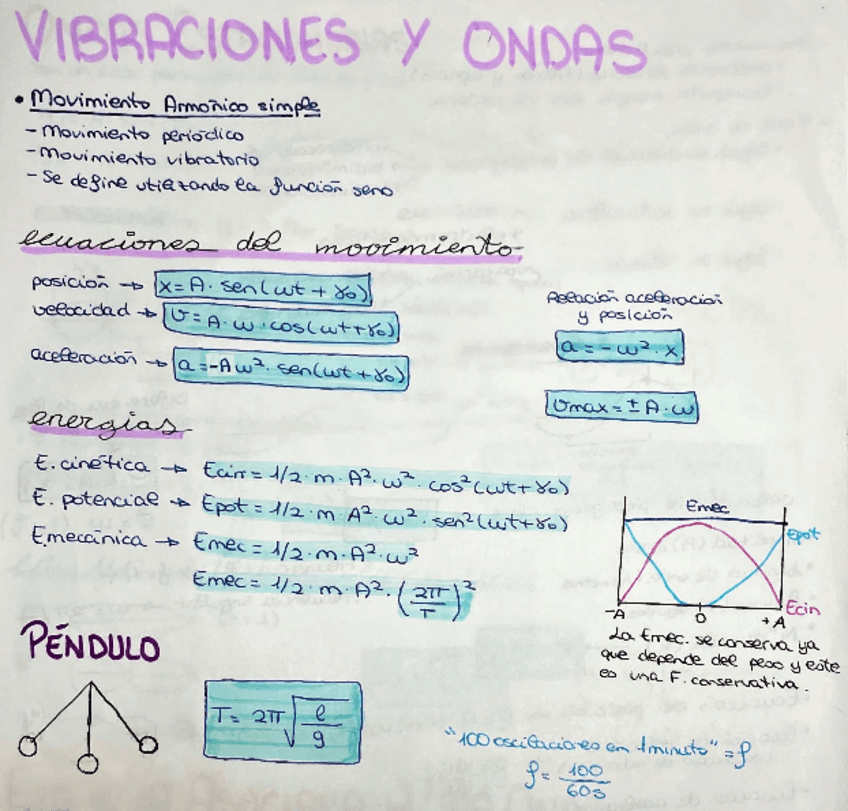 VIBRACIONES Y ONDAS
• Movimiento Armónico simple
- Movimiento periódico
- Movimiento vibratorio
- Se define utilizando la función seno
ecuaciones del movimiento
posición → x = A · sen(ωt + γ₀)
velocidad → v = A · ω · cos(ωt + γ₀)
aceleración → a = -Aω² · sen(ωt + γ₀)
Relación aceleración
y posición
a = - ω² · x
vmax = ± A · ω
energías
E. cinética → Ecin = 1/2 · m · A² · ω² · cos²(ωt + γ₀)
E. potencial → Epot = 1/2 · m · A² · ω² · sen²(ωt + γ₀)
Emecánica → Emec = 1/2 · m · A² · ω²
Emec = 1/2 · m · A² · (2π/T)²
Emec
Epot
Ecin
-A O +A
La Emec. se conserva ya
que depende del peso y este
es una F. conservativa.
PÉNDULO
T = 2π √(l/g)
"100 oscilaciones en 1 minuto" = f
f = 100/60s